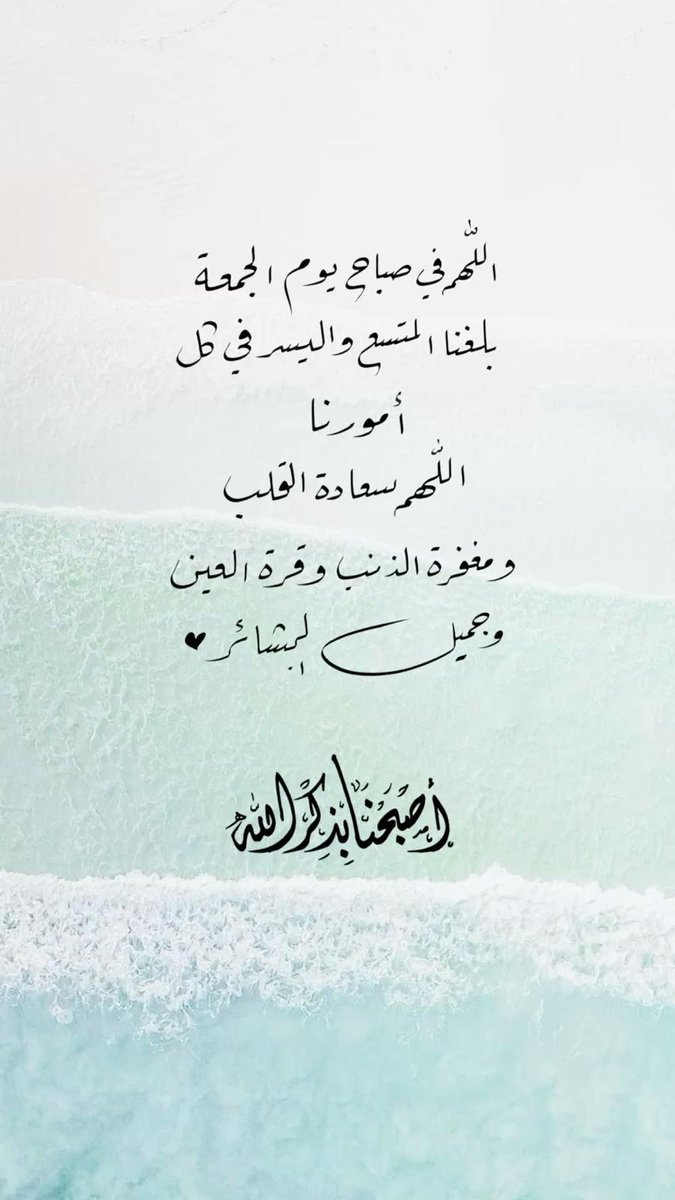 اللّهم في صباح يوم الجمعة
بلغنا المتسع واليسر في كل
أمورنا
اللّهم سعادة القلب
ومغفرة الذنب وقرة العين
وجميل البشائر ♥
أَصْبَحْنَا بِذِكْرِ اللّٰه